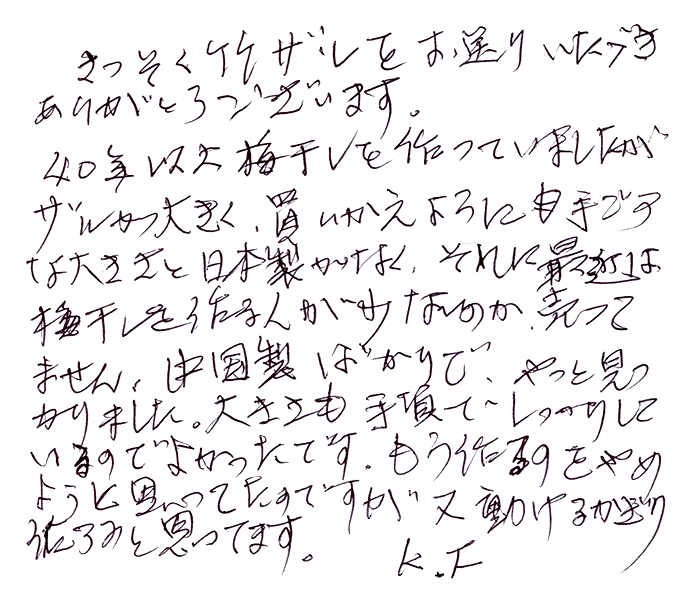 さっそく竹ザルをお送りいただき
ありがとうございます。
40年以上梅干しを作っていましたが
ザルが大きく、買いかえように も手ごろ
な大きさと日本製がなく、それに最近は
梅干しを作る人が少ないのか、売って
ません、中国製ばかりで、やっと見つ
かりました。大きさも手頃でしっかりして
いるのでよかったです。もう作るのをやめ
ようと思ってたのですが又動けるかぎり
作ろうと思ってます。
K.F